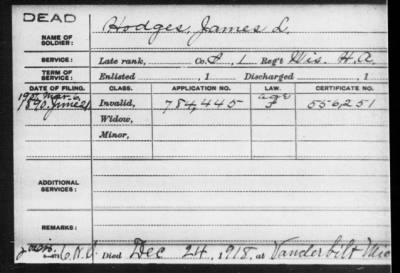 DEAD
NAME OF SOLDIER: Hodges, James L.
SERVICE: Late rank, Co. A, 1 Reg't Wis. H.A.
TERM OF SERVICE: Enlisted , 1 Discharged , 1
DATE OF FILING. CLASS. APPLICATION NO. LAW. CERTIFICATE NO.
Mar. 6, age
1890, June 21 Invalid, 784,445 556,251
Widow,
Minor,
ADDITIONAL SERVICES:
REMARKS:
C.N.O. Died Dec 24, 1918, at Vanderbilt Mic